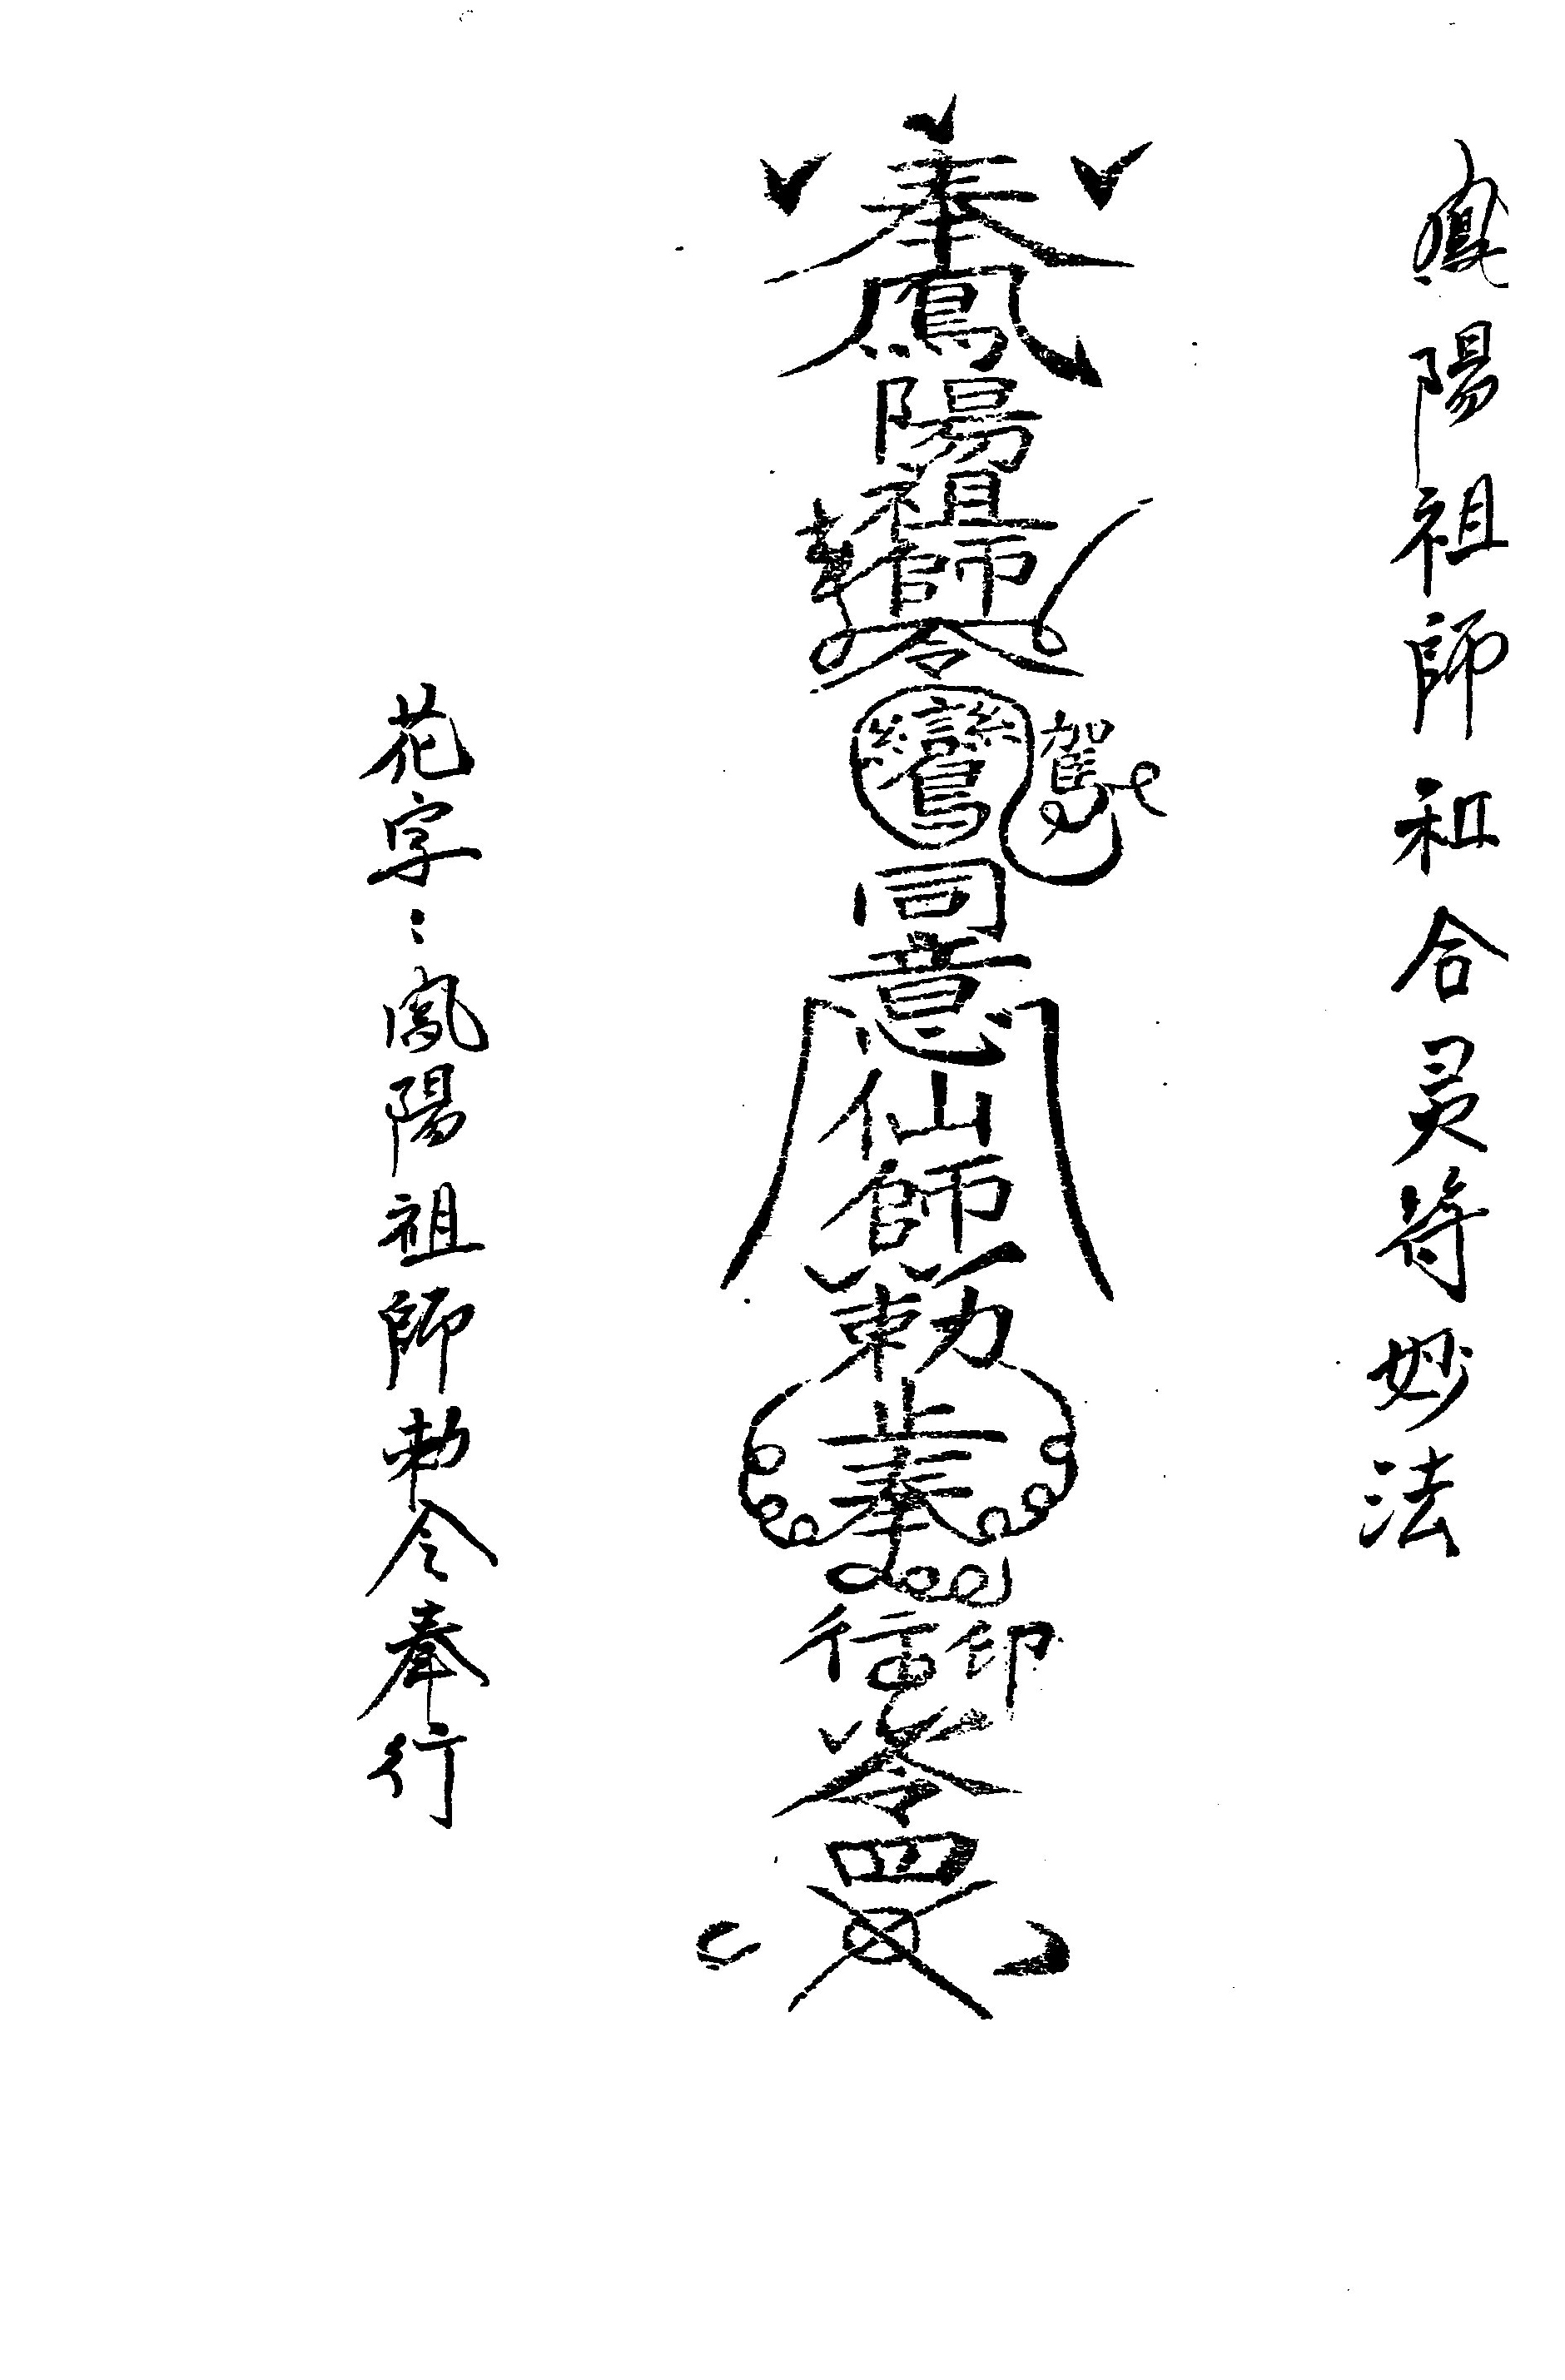 鳳陽祖師和合灵符妙法
奉鳳陽祖師勅令
鸞駕
同意仙師勅
奉行
印
令
四
花字:鳳陽祖師勅令奉行